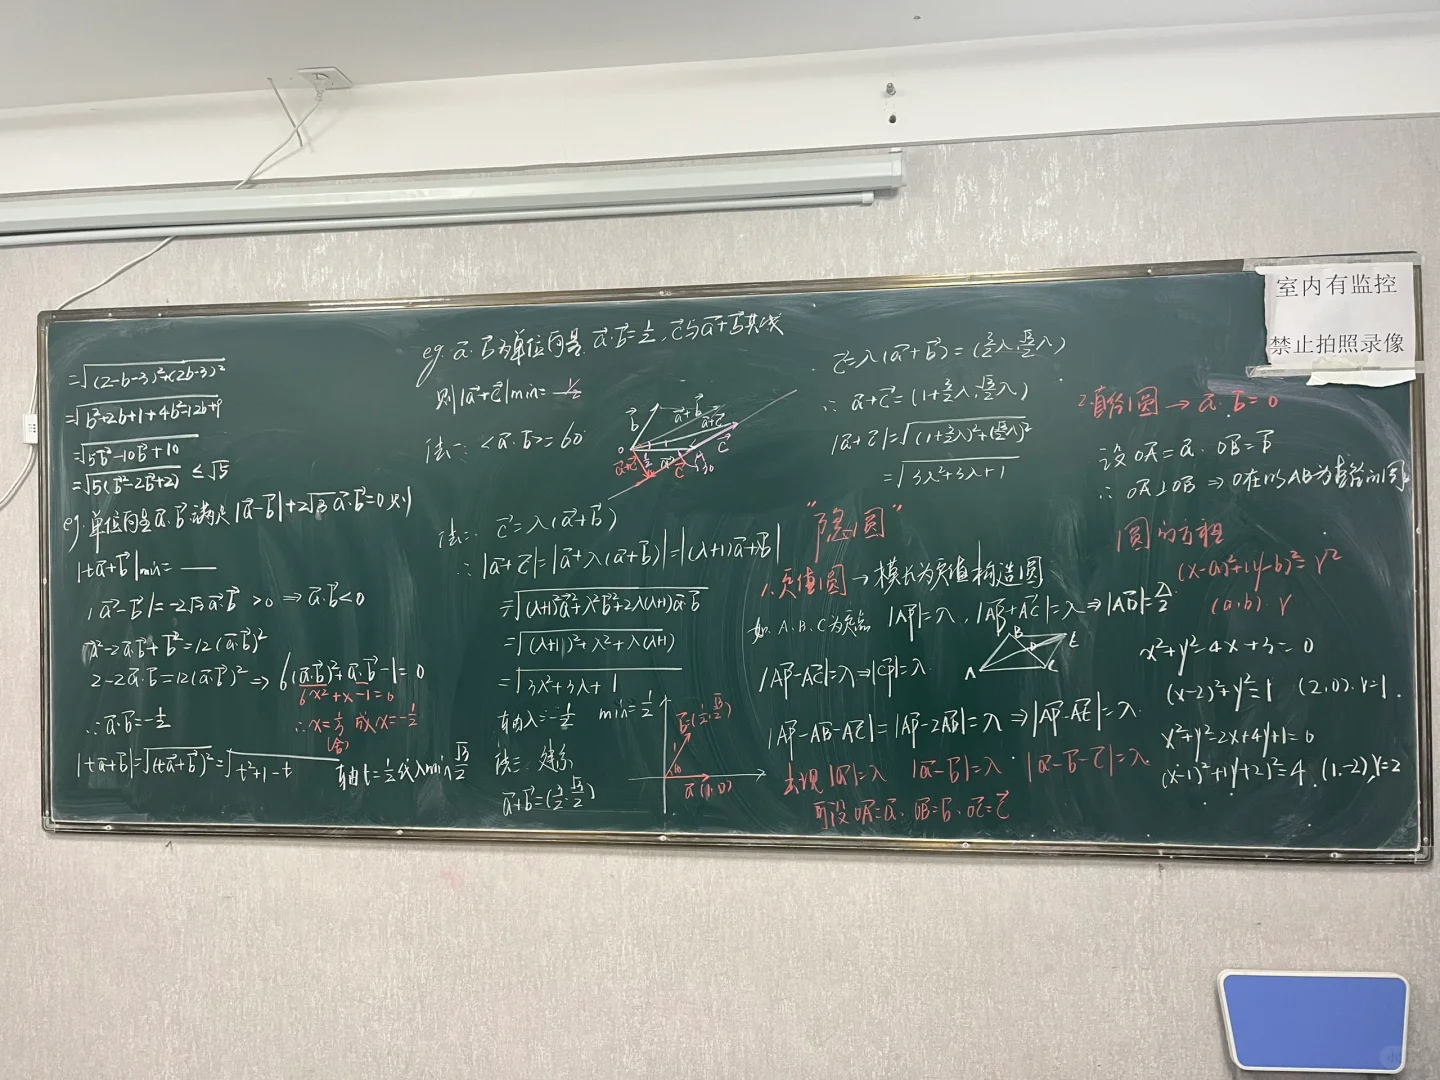 =√((2-b-3)²+(2b-3)²
=√(b²+2b+1+4b²-12b+9
=√(5b²-10b+10
=√(5(b²-2b+2) ≤√5
eg. 单位向量a⃗·b⃗满足|a⃗-b⃗|+2√3a⃗·b⃗=0则
|ta⃗+b⃗|min=___
|a⃗-b⃗|=-2√3a⃗·b⃗ >0 ⇒a⃗·b⃗<0
a⃗²-2a⃗·b⃗+b⃗²=12(a⃗·b⃗)²
2-2a⃗·b⃗=12(a⃗·b⃗)² ⇒ 6(a⃗·b⃗)²+a⃗·b⃗-1=0
6x²+x-1=0
∴a⃗·b⃗=-1/2
∴x=1/3或x=-1/2
(舍)
|ta⃗+b⃗|=√(ta⃗+b⃗)²=√t²+1-t 轴t=1/2代入min√3/2
eg. a⃗·b⃗为单位向量 a⃗·b⃗=1/2, c⃗与a⃗+b⃗共线
则|a⃗+c⃗|min=1/2
法一: <a⃗·b⃗>=60°
b⃗ a⃗+b⃗ a⃗+c⃗
O a⃗ c⃗
a⃗+c⃗ c⃗ 30
法二: c⃗=λ(a⃗+b⃗)
∴|a⃗+c⃗|=|a⃗+λ(a⃗+b⃗)|=|(λ+1)a⃗+λb⃗|
=√((λ+1)²a⃗²+λ²b⃗²+2λ(λ+1)a⃗·b⃗
=√((λ+1)²+λ²+λ(λ+1)
=√(3λ²+3λ+1
轴λ=-1/2 min=1/2
法三: 建系
a⃗+b⃗=(3/2·√3/2)
b⃗(1/2·√3/2)
60
a⃗(1,0)
c⃗=λ(a⃗+b⃗)=(3/2λ,√3/2λ)
∴ a⃗+c⃗=(1+3/2λ,√3/2λ)
|a⃗+c⃗|=√((1+3/2λ)²+(√3/2λ)²
=√(3λ²+3λ+1
“隐圆”
1.定值圆→模长为定值构造圆
如. A、B、C为定点 |AP⃗|=λ, |AB⃗+AC⃗|=λ⇒|AD⃗|=λ/2
B E
D
A C
|AP⃗-AC⃗|=λ⇒|CP⃗|=λ
|AP⃗-AB⃗-AC⃗|=|AP⃗-2AD⃗|=λ ⇒|AP⃗-AE⃗|=λ
出现|a⃗|=λ |a⃗-b⃗|=λ · |a⃗-b⃗-c⃗|=λ
可设OA⃗=a⃗. OB⃗=b⃗. OC⃗=c⃗
2.直径圆→a⃗·b⃗=0
设OA⃗=a⃗. OB⃗=b⃗
∴ OA⃗⊥OB⃗ ⇒O在以AB为直径的圆
圆的方程
(x-a)²+(y-b)²=r²
(a,b). r
x²+y²-4x+3=0
(x-2)²+y²=1 (2,0).r=1.
x²+y²-2x+4y+1=0
(x-1)²+(y+2)²=4. (1,-2), r=2
室内有监控
禁止拍照录像